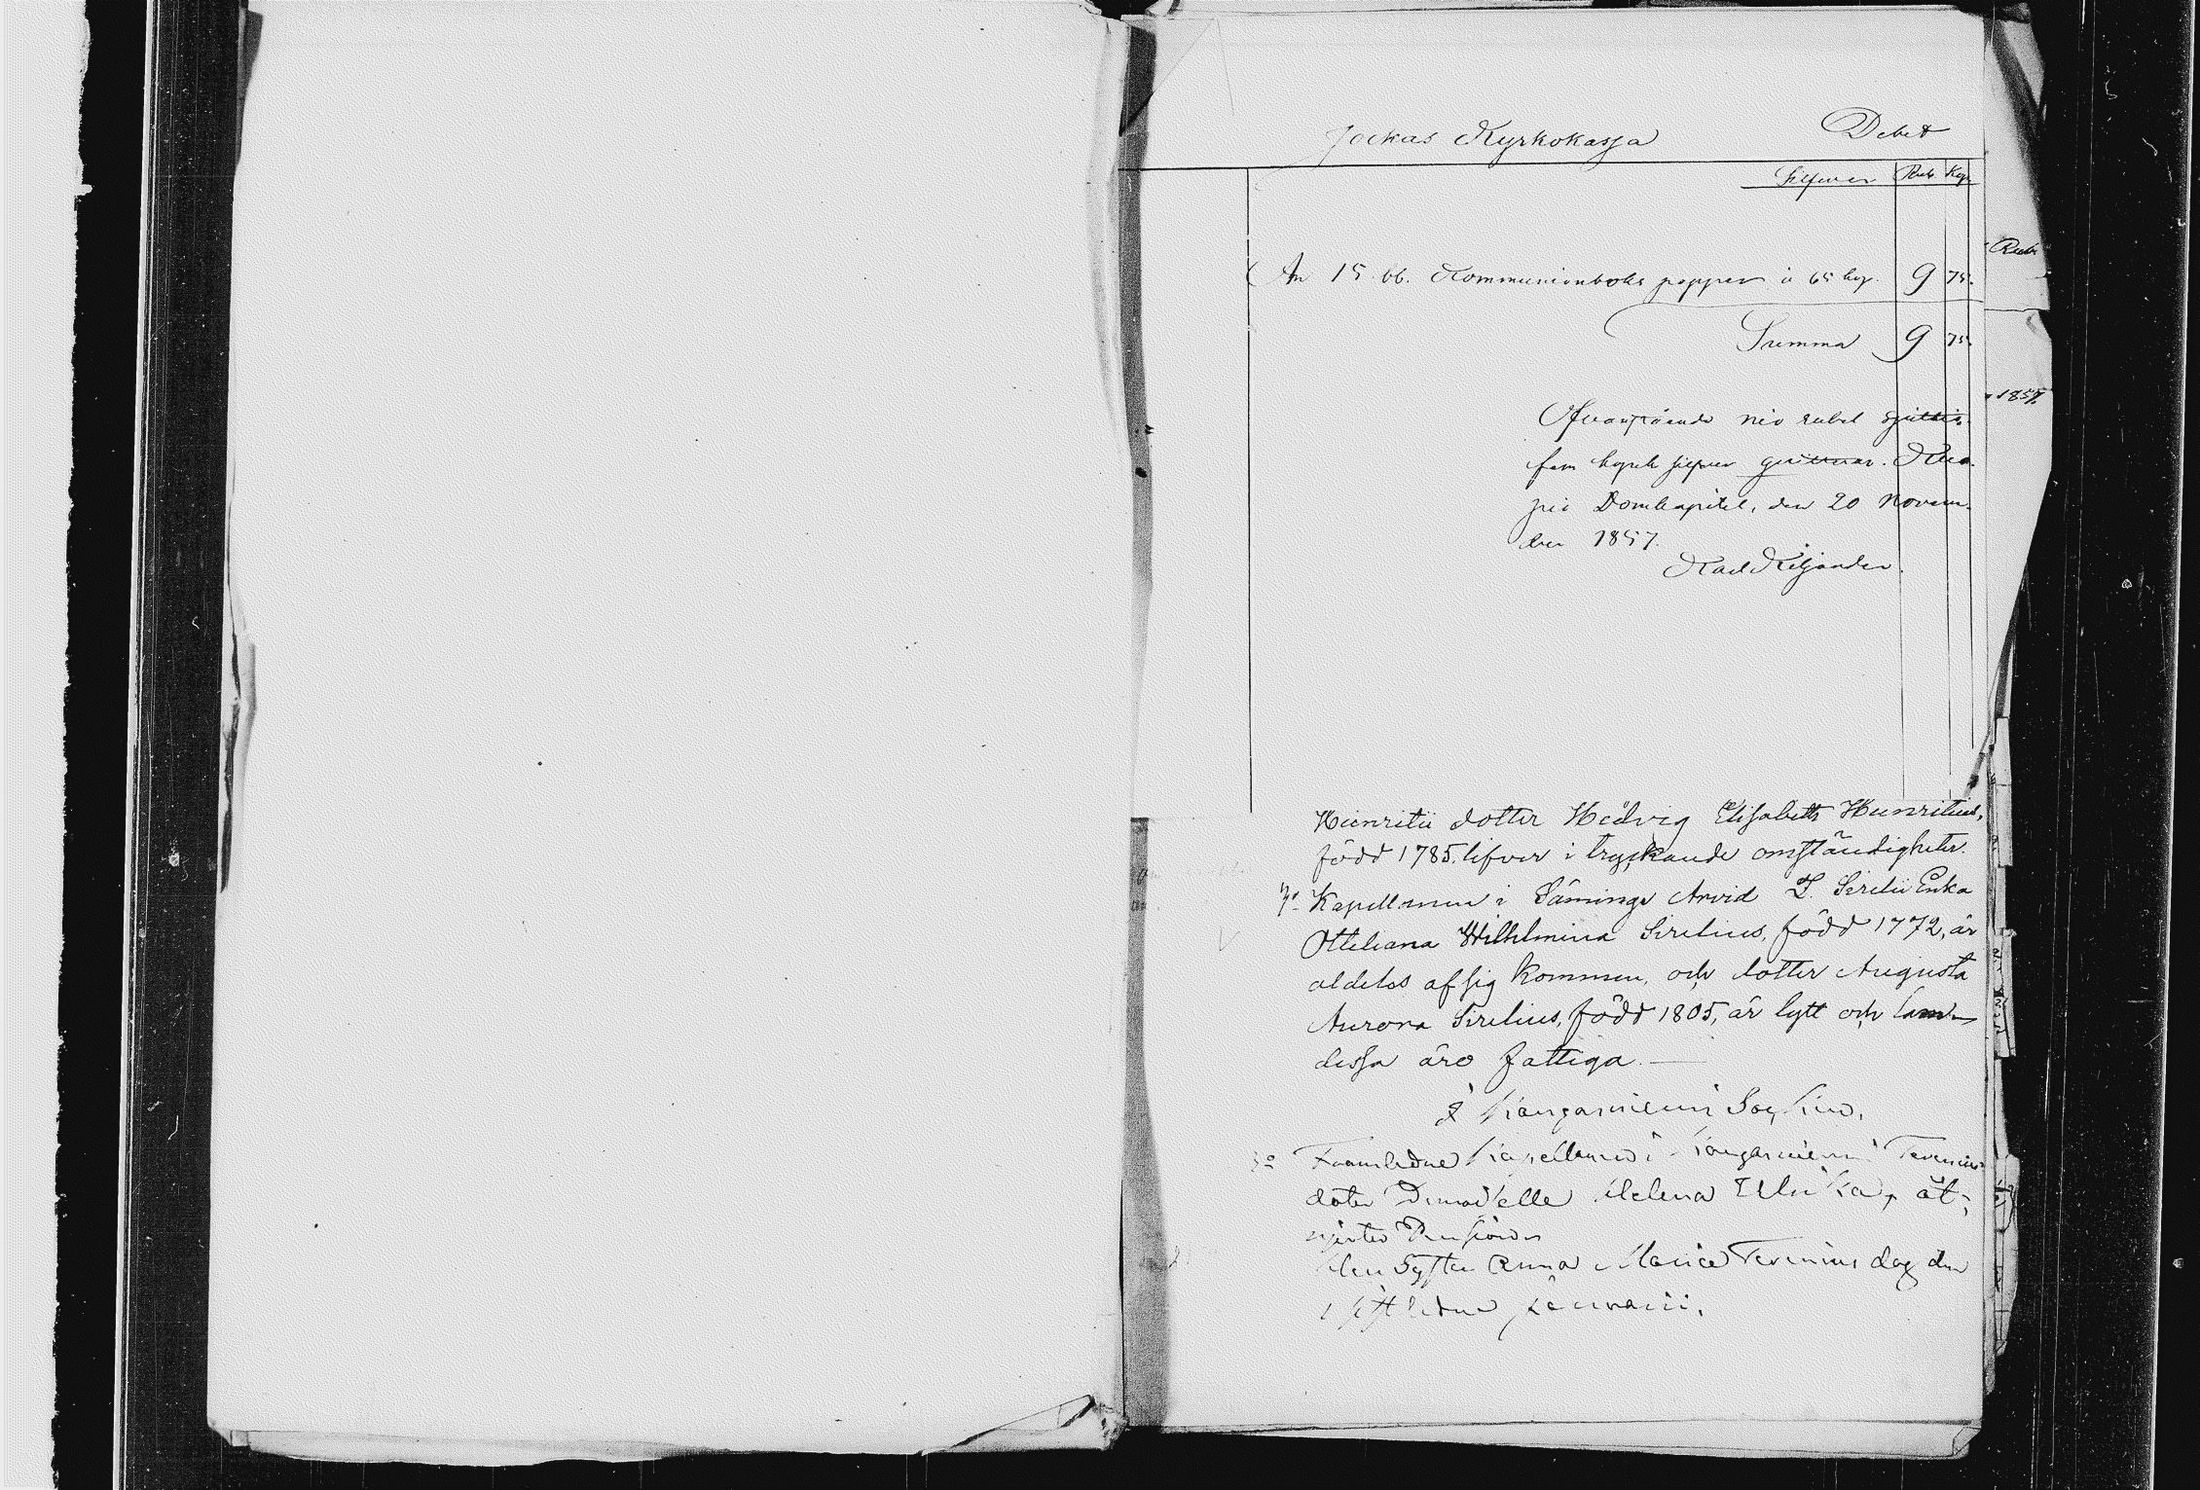 Jockas Kyrkokassa Debet
Silfver Rub. Kop.
An 15 bb. Kommunionboks papper à 65 kop. 9 75.
Summa 9 75.
Rub.
1857.
Ofvanstående nio rubel sjuttio-
fem kopek silfver qvitteras. Kuo-
pio Domkapitel, den 20 Novem-
ber 1857.
Karl Kiljander.
Heinritii dotter Hedvig Elisabeth Heinritius,
född 1785. lefver i tryckande omständigheter.
Kapellanen i Säminge Arvid I. Sirelii Enka
Otteliana Wilhelmina Sirelius, född 1772, är
aldeles af sig kommen, och dotter Augusta
Aurora Sirelius, född 1805, är lytt och lam
dessa äro fattiga. —
I Kangasniemi Sockn.
3o Framledne Kapellanen i Kangasniemi Terenius
doter Demoiselle Helena Ulrika, åt-
njuter Pension
Syster Anna Maria Terenius dog den
sistledne Januarii.